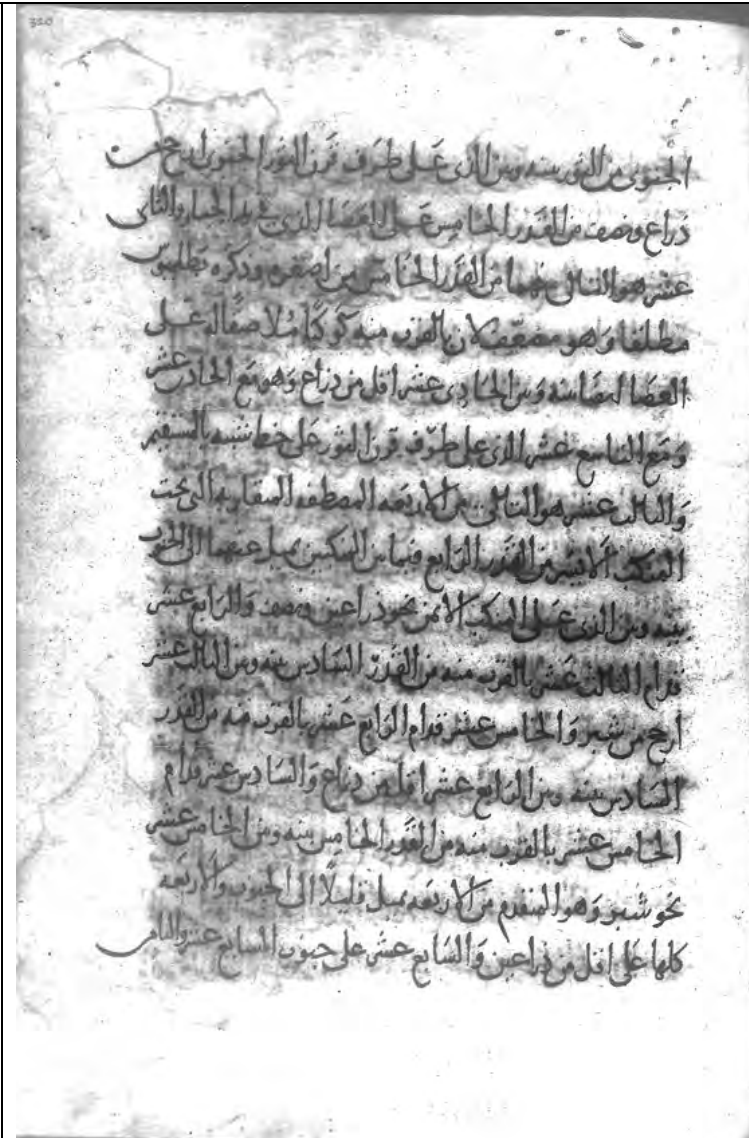 320
الجنوبى من الثور بينه وبين الذى على طرف قرن الثور الجنوبى ارجح من
ذراع ونصف من القدر الخامس على العصا الذى فى يد الجبار والثانى
عشر هو التالى منهما من القدر الخامس من اصغره وذكره بطلميوس
مطلقا وهو مضعف لان بالقرب منه كوكبا ملاصقا له على
العصا ايضا بينه وبين الحادى عشر اقل من ذراع وهو مع الحادى عشر
ومع التاسع عشر الذى على طرف قرن الثور على خط شبيه بالمستقيم
والثالث عشر هو التالى من الاربعة المصطفة المتقاربة التى تحت
المنكب الايسر من القدر الرابع فيما بين المنكبين يميل عنهما الى الجنوب
بينه وبين الذى على المنكب الايمن نحو ذراعين ونصف والرابع عشر
قدام الثالث عشر بالقرب منه من القدر السادس بينه وبين الثالث عشر
ارجح من شبر والخامس عشر قدام الرابع عشر بالقرب منه من القدر
السادس بينه وبين الرابع عشر اقل من ذراع والسادس عشر قدام
الخامس عشر بالقرب منه من القدر الخامس بينه وبين الخامس عشر
نحو شبر وهو المتقدم من الاربعة يميل قليلا الى الجنوب والاربعة
كلها على اقل من ذراعين والسابع عشر على جنوب السابع عشر والثامن